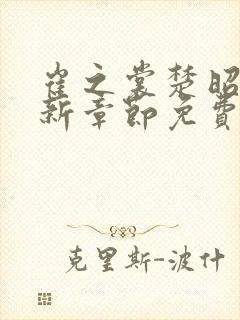 崔之裳楚昭
新章節免費
克里斯-波什